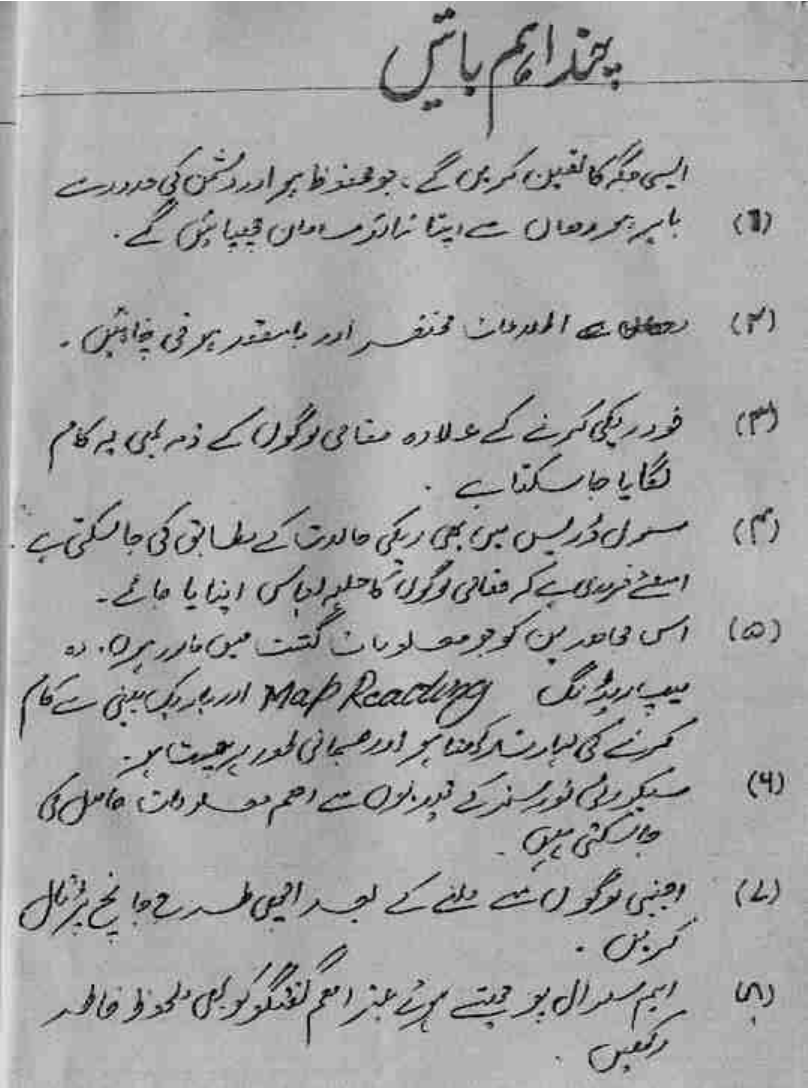 چند اہم باتیں
ایسی جگہ کا تعین کریں گے۔ جو محفوظ ہو اور دشمن کی حدود سے
(1) باہر ہو وہاں سے اپنا سامان چھپائیں گے۔
(۲) سے اطلاعات مختصر اور بامقصد ہونی چاہئیں۔
(۳) خود ریکی کرنے کے علاوہ مقامی لوگوں کے ذمہ بھی یہ کام
لگایا جا سکتا ہے۔
(۴) سول ڈریس میں بھی ریکی حالات کے مطابق کی جا سکتی ہے۔
اسلئے ضروری ہے کہ مقامی لوگوں کا حلیہ لباس اپنایا جائے۔
(۵) اس مجاہدین کو جو معلومات گشت میں مامور ہوں۔ وہ
میپ ریڈنگ Map Reading اور باریک بینی سے کام
کرنے کی مہارت رکھتا ہو اور جسمانی طور پر چست ہو۔
(۶) سیکیورٹی فورسز کے قیدیوں سے اہم معلومات حاصل کی
جا سکتی ہیں۔
(۷) اجنبی لوگوں سے ملنے کے بعد اچھی طرح جانچ پڑتال
کریں۔
(۸) اہم سوال پوچھتے ہوئے غیر اہم گفتگو کو بھی ملحوظ خاطر
رکھیں۔